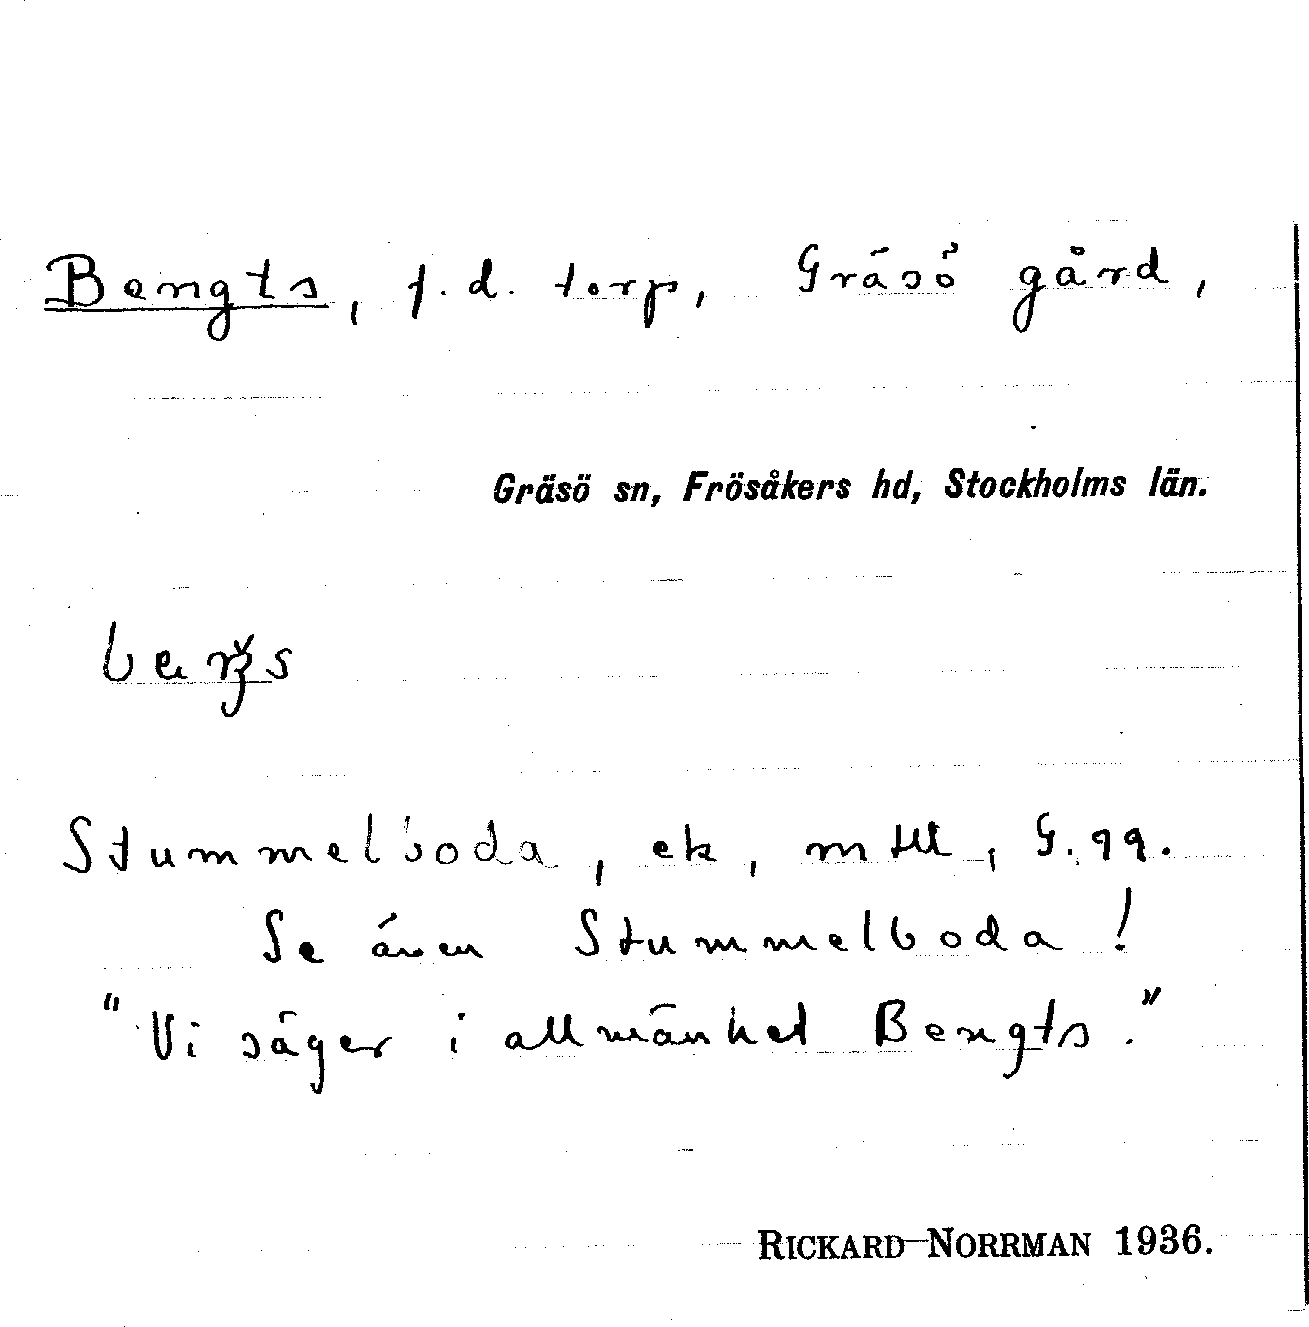 Bengts, f.d. torp, Gräsö gård,
Gräsö sn, Frösåkers hd, Stockholms län.
Stummelboda, ek, mtll, G. 99.
Se även Stummelboda!
"Vi säger i allmänhet Bengts."
RICKARD NORRMAN 1936.